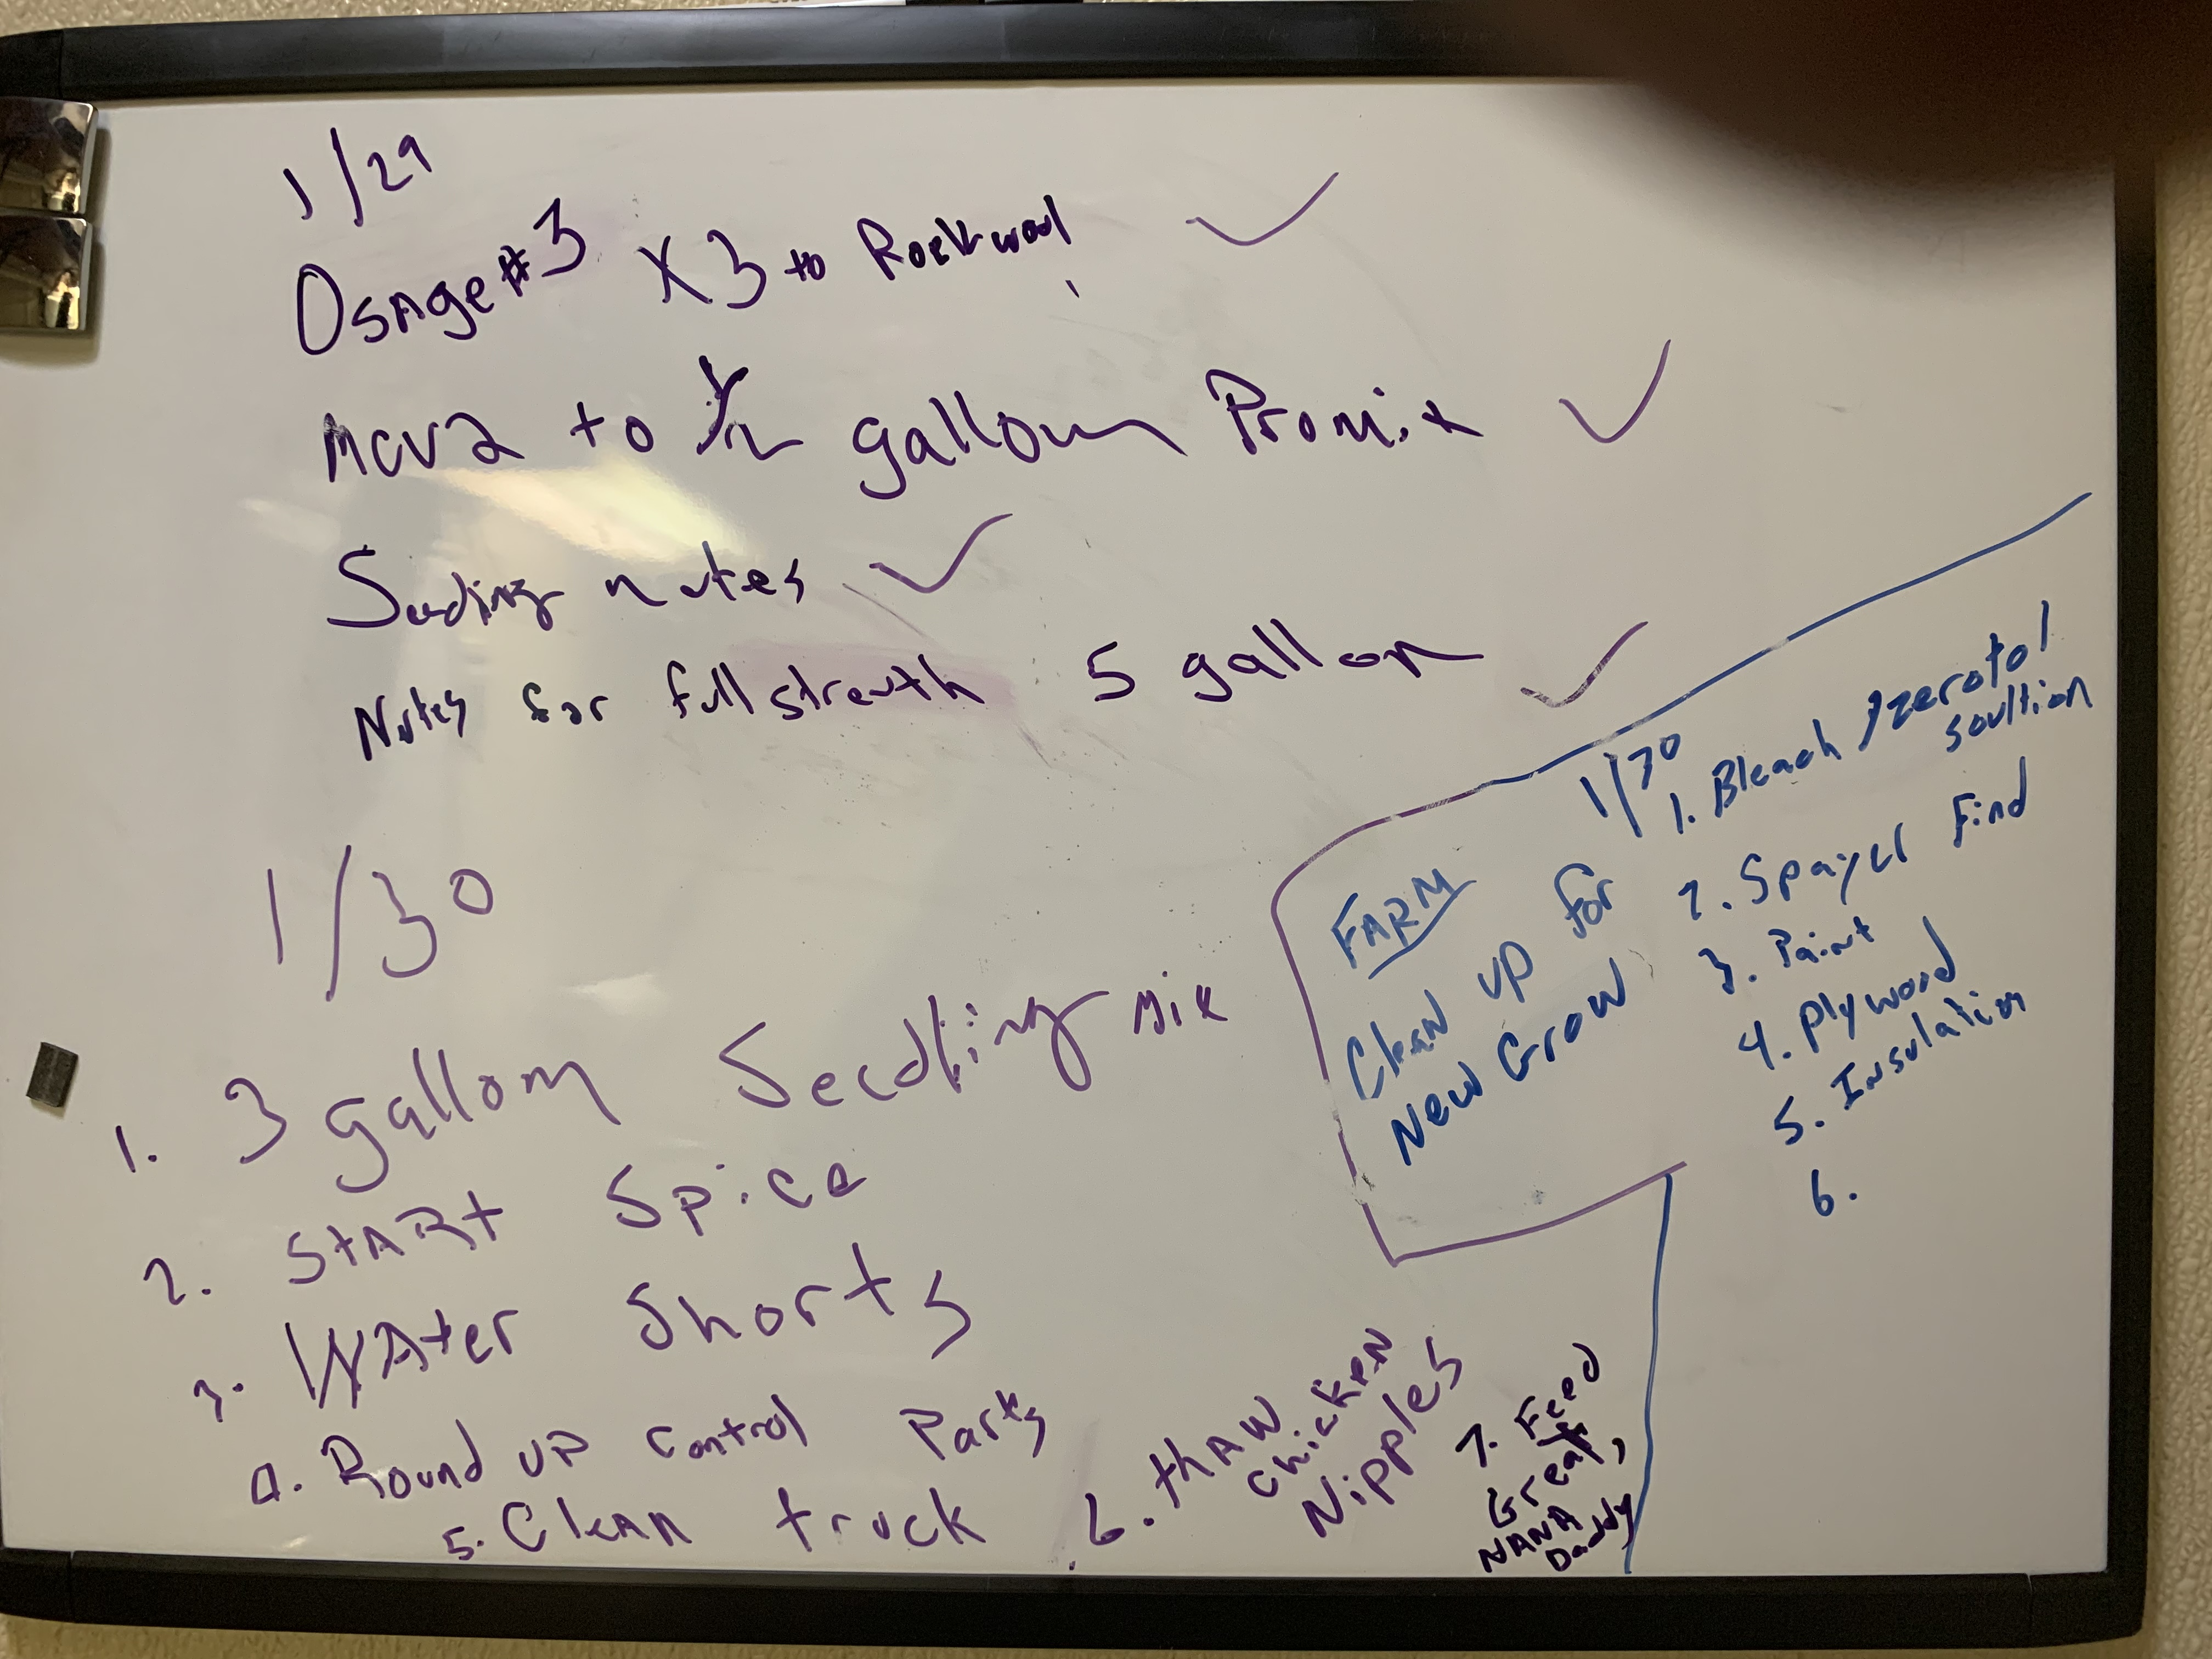 1/29
Osage #3 x 3 to Rockwool
MCV2 to 1/2 gallon Promix
Seeding notes
Notes for full strenth 5 gallon
1/30
1. 3 gallon Seedling Mix
2. Start Spice
3. Water Shorts
4. Round up control Parts
5. Clean truck
6. thaw
chicken
Nipples
7. Feed
Great,
NANA
Daddy
FARM
Clean up for
New Grow
1/30
1. Bleach / zerotol
soultion
2. Spayer Find
3. Paint
4. Plywood
5. Insulation
6.